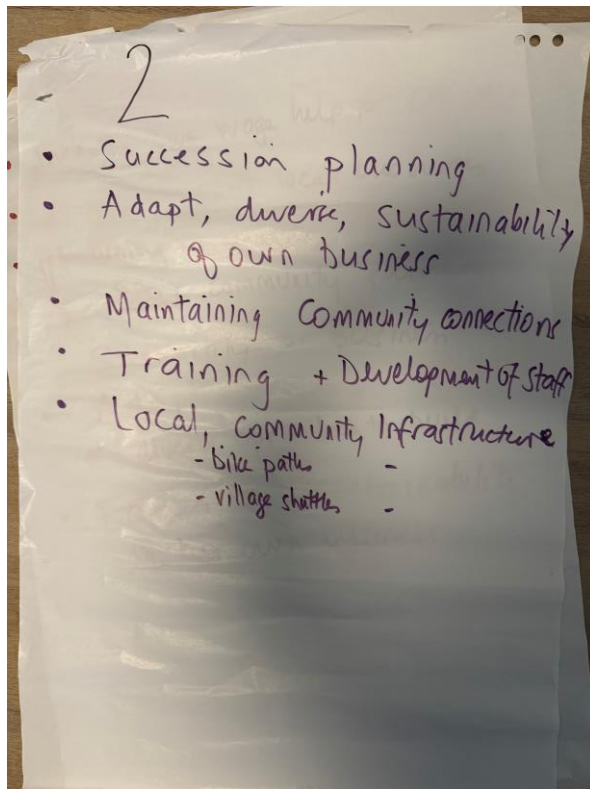 2
• Succession planning
• Adapt, diverse, sustainability
of own business
• Maintaining Community connections
• Training + Development of staff
• Local, Community Infrastructure
- bike paths -
- village shuttles -